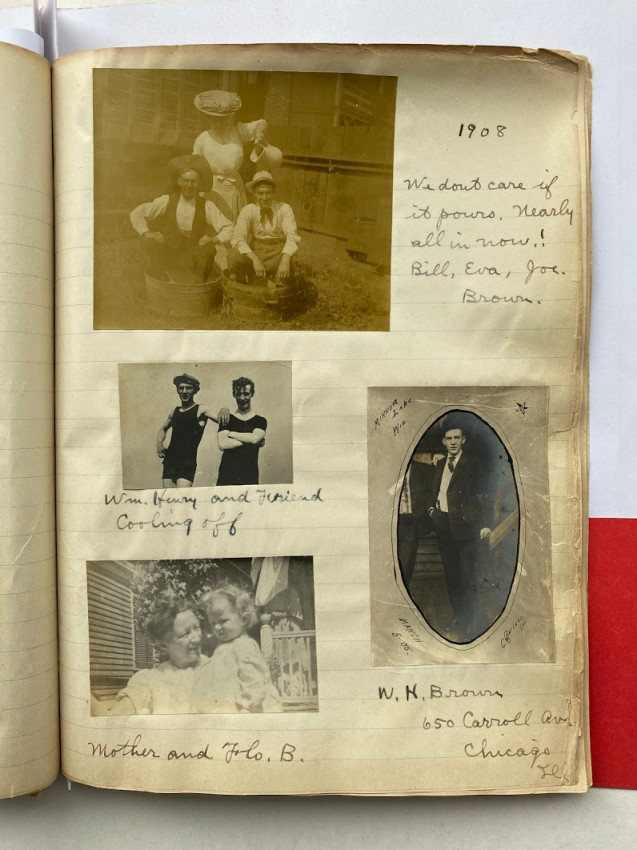 1908
We dont care if
it pours. Nearly
all in now!!
Bill, Eva, Joe.
Brown.
Wm. Henry and Friend
Cooling off
Mirror
Lake
Wis
March
8-06-
W. H. Brown
650 Carroll Ave
Chicago
Ill
Mother and Flo. B.